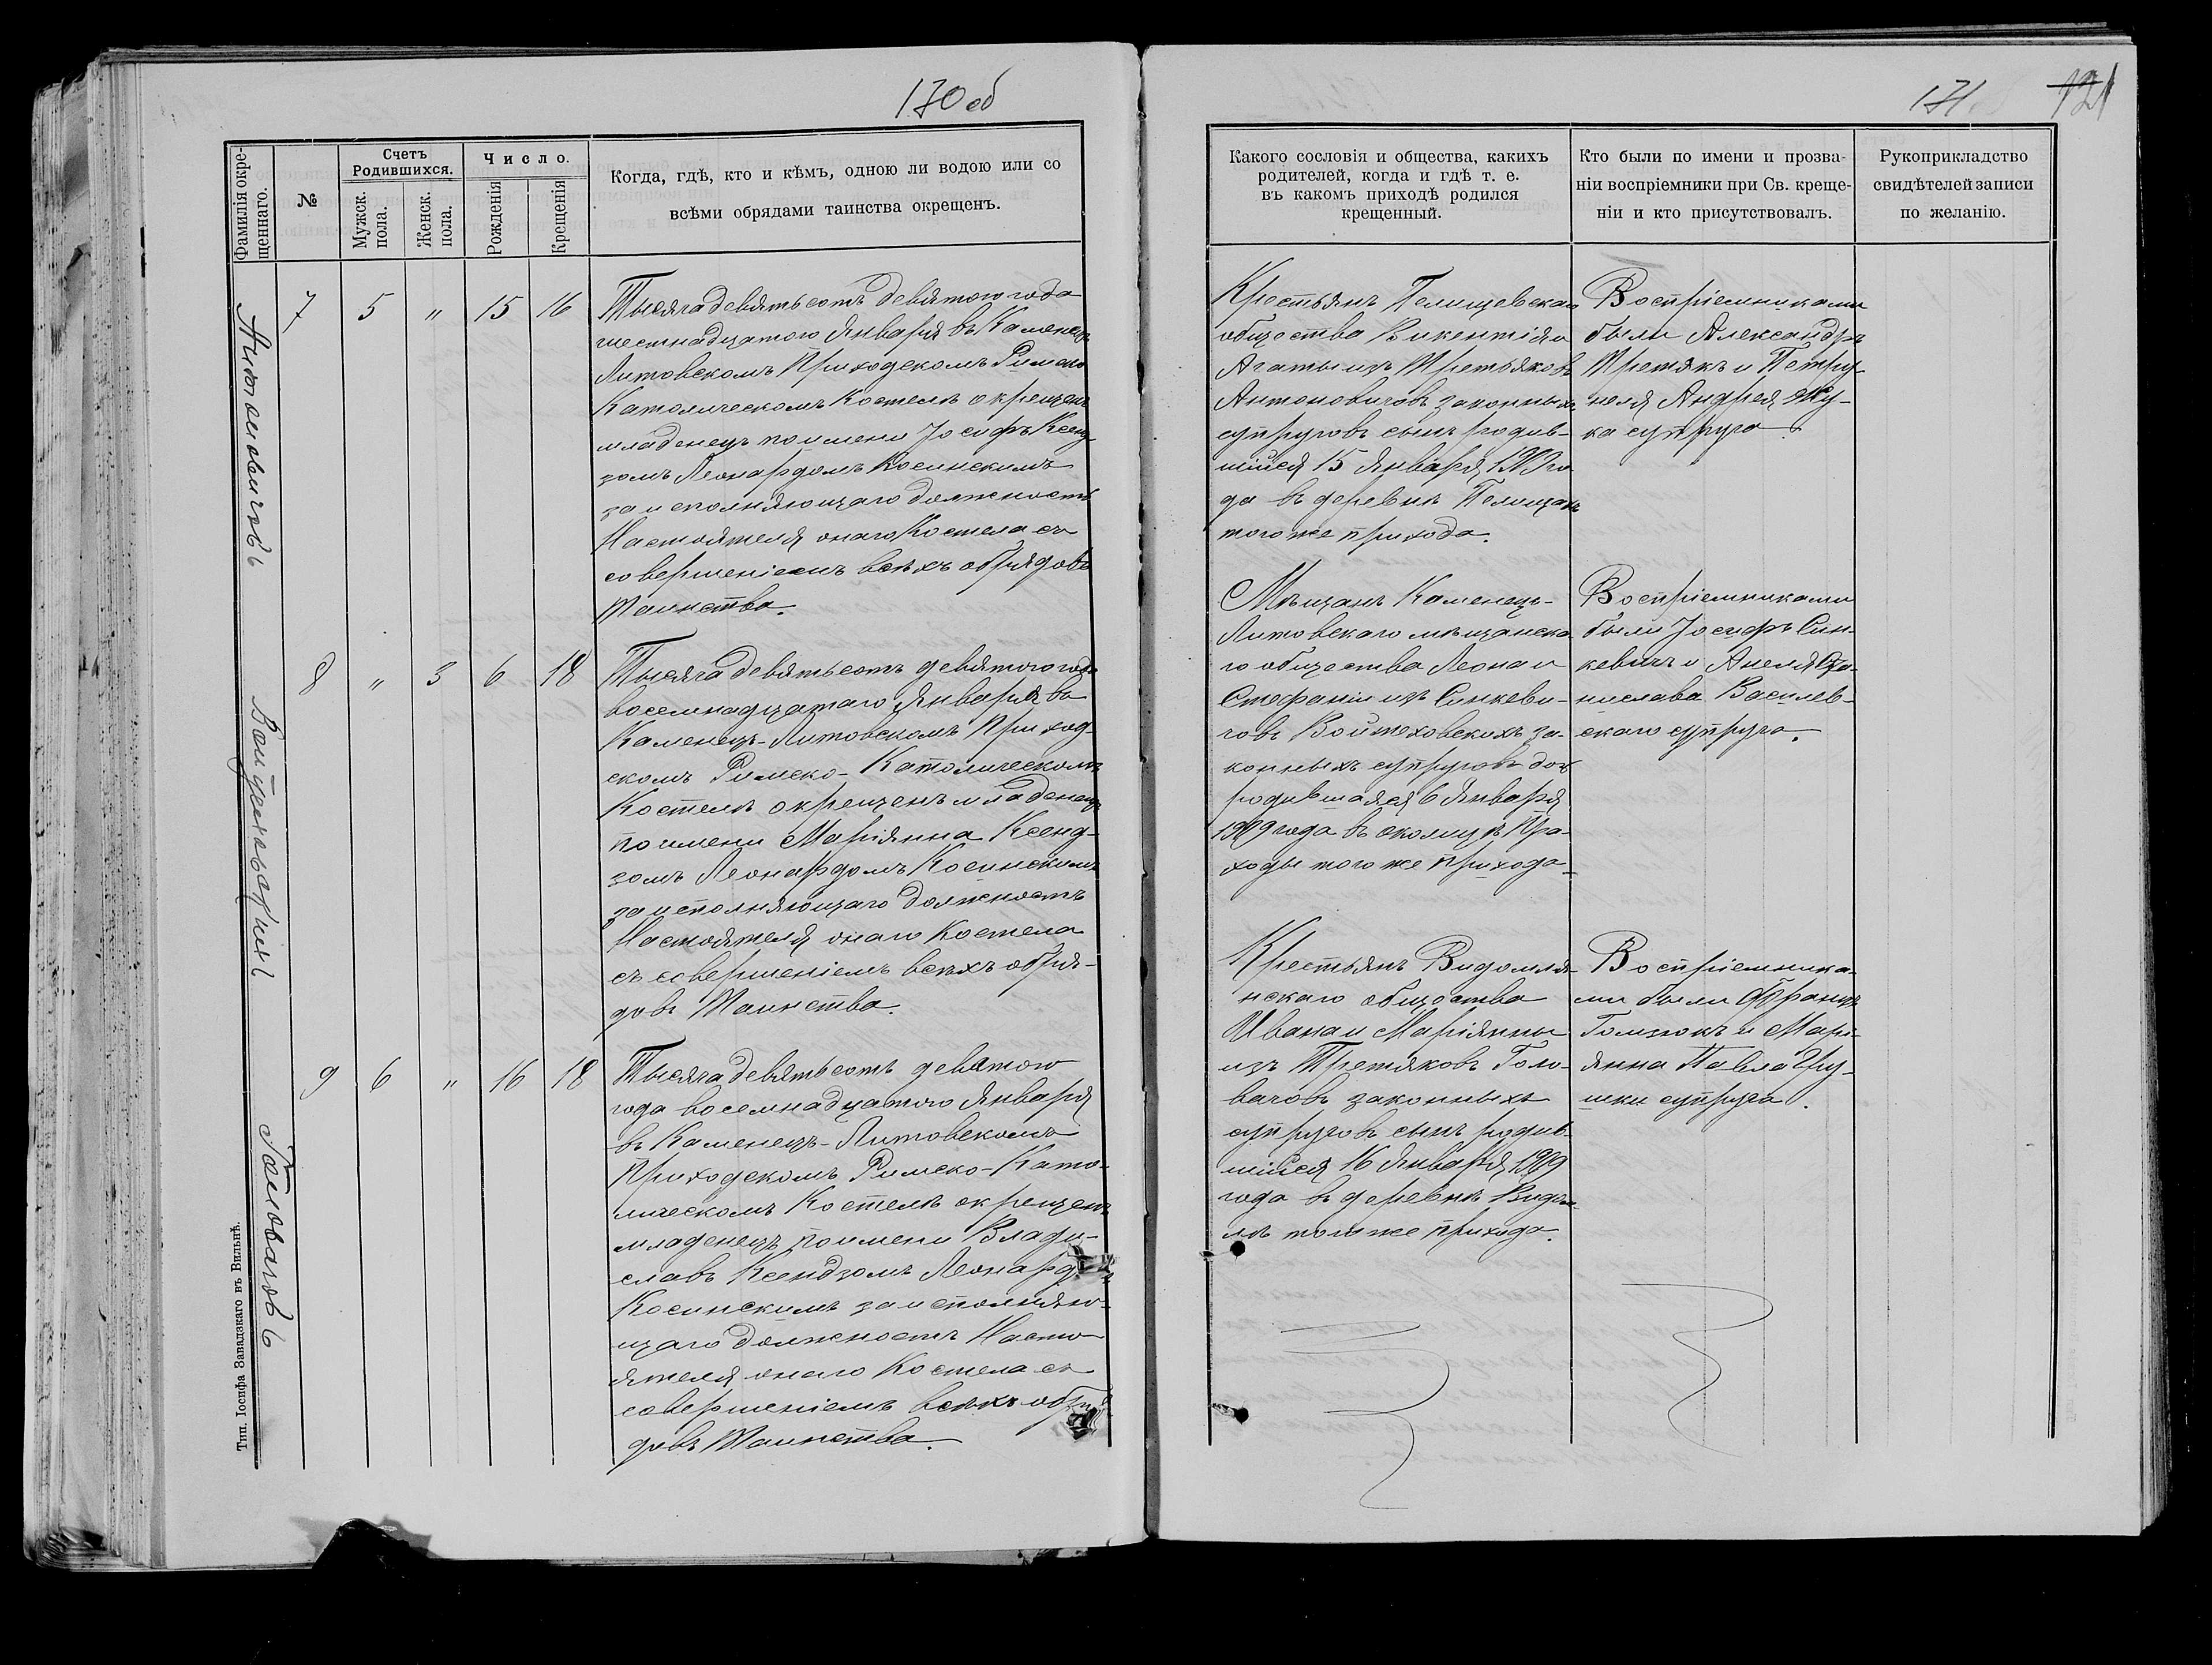 170 об
Фамилія окре-
щеннаго.
№
Счетъ
Родившихся.
Мужск.
пола.
Женск.
пола.
Число.
Рожденія
Крещенія
Когда, гдѣ, кто и кѣмъ, одною ли водою или со
всѣми обрядами таинства окрещенъ.
Антоновичовъ
7 5 " 15 16
Тысяча девятьсотъ девятого года
шестнадцатого Января въ Каменецъ
Литовскомъ Приходскомъ Римско
Католическомъ Костелѣ окрещенъ
младенецъ по имени Іосифъ Ксенд-
зомъ Леонардомъ Косинскимъ
за исполняющаго должность
Настоятеля онаго Костела съ
совершеніемъ всѣхъ обрядовъ
Таинства.
Войтеховскихъ
8 " 3 6 18
Тысяча девятьсотъ девятого года
восемнадцатаго Января въ
Каменецъ-Литовскомъ Приход-
скомъ Римско-Католическомъ
Костелѣ окрещенъ младенецъ
по имени Маріянна Ксенд-
зомъ Леонардомъ Косинскимъ
за исполняющаго должность
Настоятеля онаго Костела
съ совершеніемъ всѣхъ обря-
довъ Таинства.
Головачовъ
9 6 " 16 18
Тысяча девятьсотъ девятого
года восемнадцатого Января
въ Каменецъ-Литовскомъ
Приходскомъ Римско-Като-
лическомъ Костелѣ окрещенъ
младенецъ по имени Влади-
славъ Ксендзомъ Леонардомъ
Косинскимъ за исполняю-
щаго должность Насто-
ятеля онаго Костела съ
совершеніемъ всѣхъ обря-
довъ Таинства.
Тип. Іосифа Завадзкаго въ Вильнѣ.
171. 121
Какого сословія и общества, какихъ
родителей, когда и гдѣ т. е.
въ какомъ приходѣ родился
крещенный.
Кто были по имени и прозва-
ніи воспріемники при Св. креще-
ніи и кто присутствовалъ.
Рукоприкладство
свидѣтелей записи
по желанію.
Крестьянъ Пелищевскаго
общества Викентія и
Агаты изъ Третьяковъ
Антоновичовъ законныхъ
супруговъ сынъ родив-
шійся 15 Января 1909 го
да въ деревнѣ Пелищахъ
того же прихода.
Воспріемниками
были Александръ
Третякъ и Петру-
неля Андрея Жу-
ка супруга.
Мѣщанъ Каменецъ-
Литовскаго мѣщанска
го общества Леона и
Стефаніи изъ Синкеви-
човъ Войтеховскихъ за-
конныхъ супруговъ доч
родившаяся 6 Января
1909 года въ околицѣ Пра-
ходы того же прихода
Воспріемниками
были Іосифъ Син-
кевичъ и Анеля Ста-
нислава Василев-
скаго супруга.
Крестьянъ Видомля-
нскаго общества
Ивана и Маріянны
изъ Третяковъ Голо-
вачовъ законныхъ
супруговъ сынъ родив-
шійся 16 Января 1909
года въ деревнѣ Видом-
лѣ того же прихода.
Воспріемника-
ми были Францъ
Голизюкъ и Марі-
янна Павла
супруга.